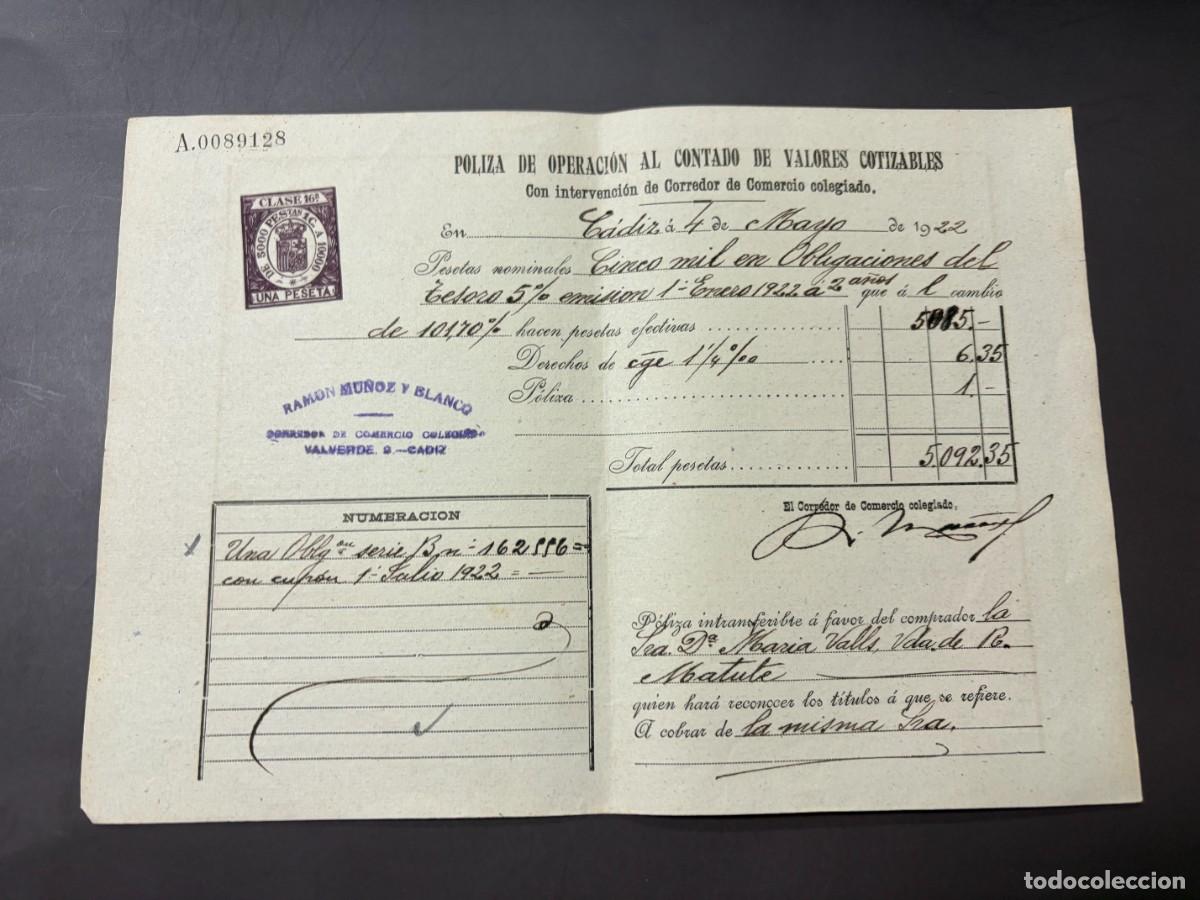 A.0089128
POLIZA DE OPERACIÓN AL CONTADO DE VALORES COTIZABLES
Con intervención de Corredor de Comercio colegiado.
CLASE 16ª
DE 5000 PESTAS 1 C. A 10000
UNA PESETA
En Cádiz á 4 de Mayo de 1922
Pesetas nominales Cinco mil en Obligaciones del
Tesoro 5% emision 1º Enero 1922 á 2 años que á l cambio
de 101,70% hacen pesetas efectivas 5085.—
Derechos de cge 1 1/4 %00 6.35
Póliza 1.—
Total pesetas 5.092.35
RAMON MUÑOZ Y BLANCO
CORREDOR DE COMERCIO COLEGIADO
VALVERDE, 9.—CADIZ
El Corredor de Comercio colegiado,
R. Muñoz
NUMERACION
Una Oblgon serie B nº 162556=
con cupón 1º Julio 1922 = —
Póliza intransferible á favor del comprador la
Sra. Dª Maria Valls, Vda. de R.
Matute
quien hará reconocer los títulos á que se refiere.
A cobrar de la misma Sra.
todocoleccion